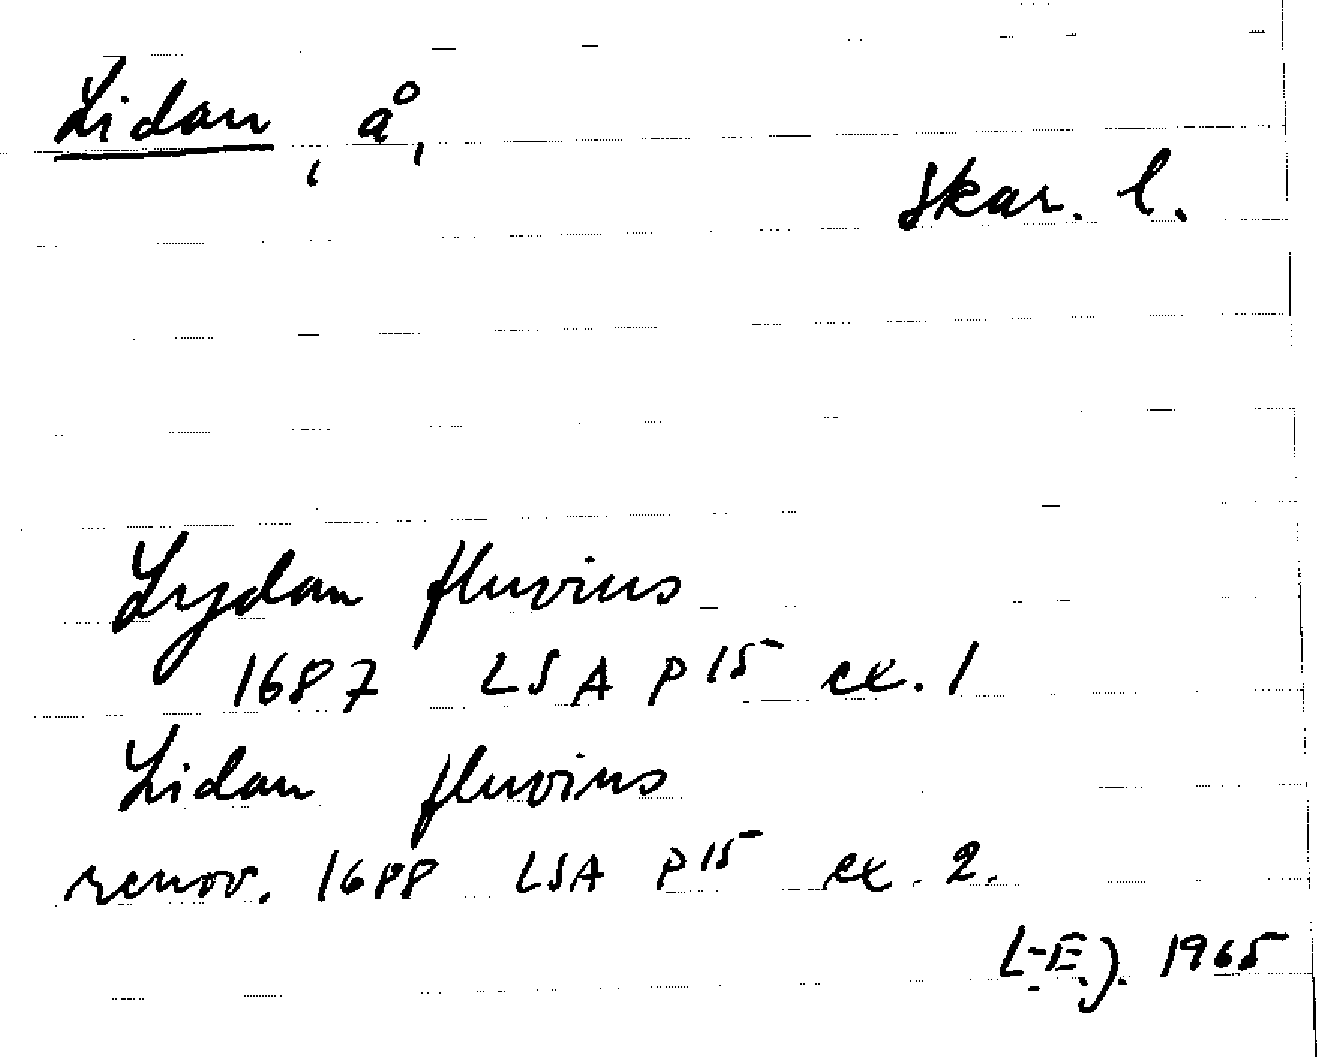 Lidan, å,
Skar. l.
Lydan fluvius
1687 LSA P 15 ex. 1
Lidan fluvius
renov. 1688 LSA P 15 ex. 2.
L-E.J. 1965